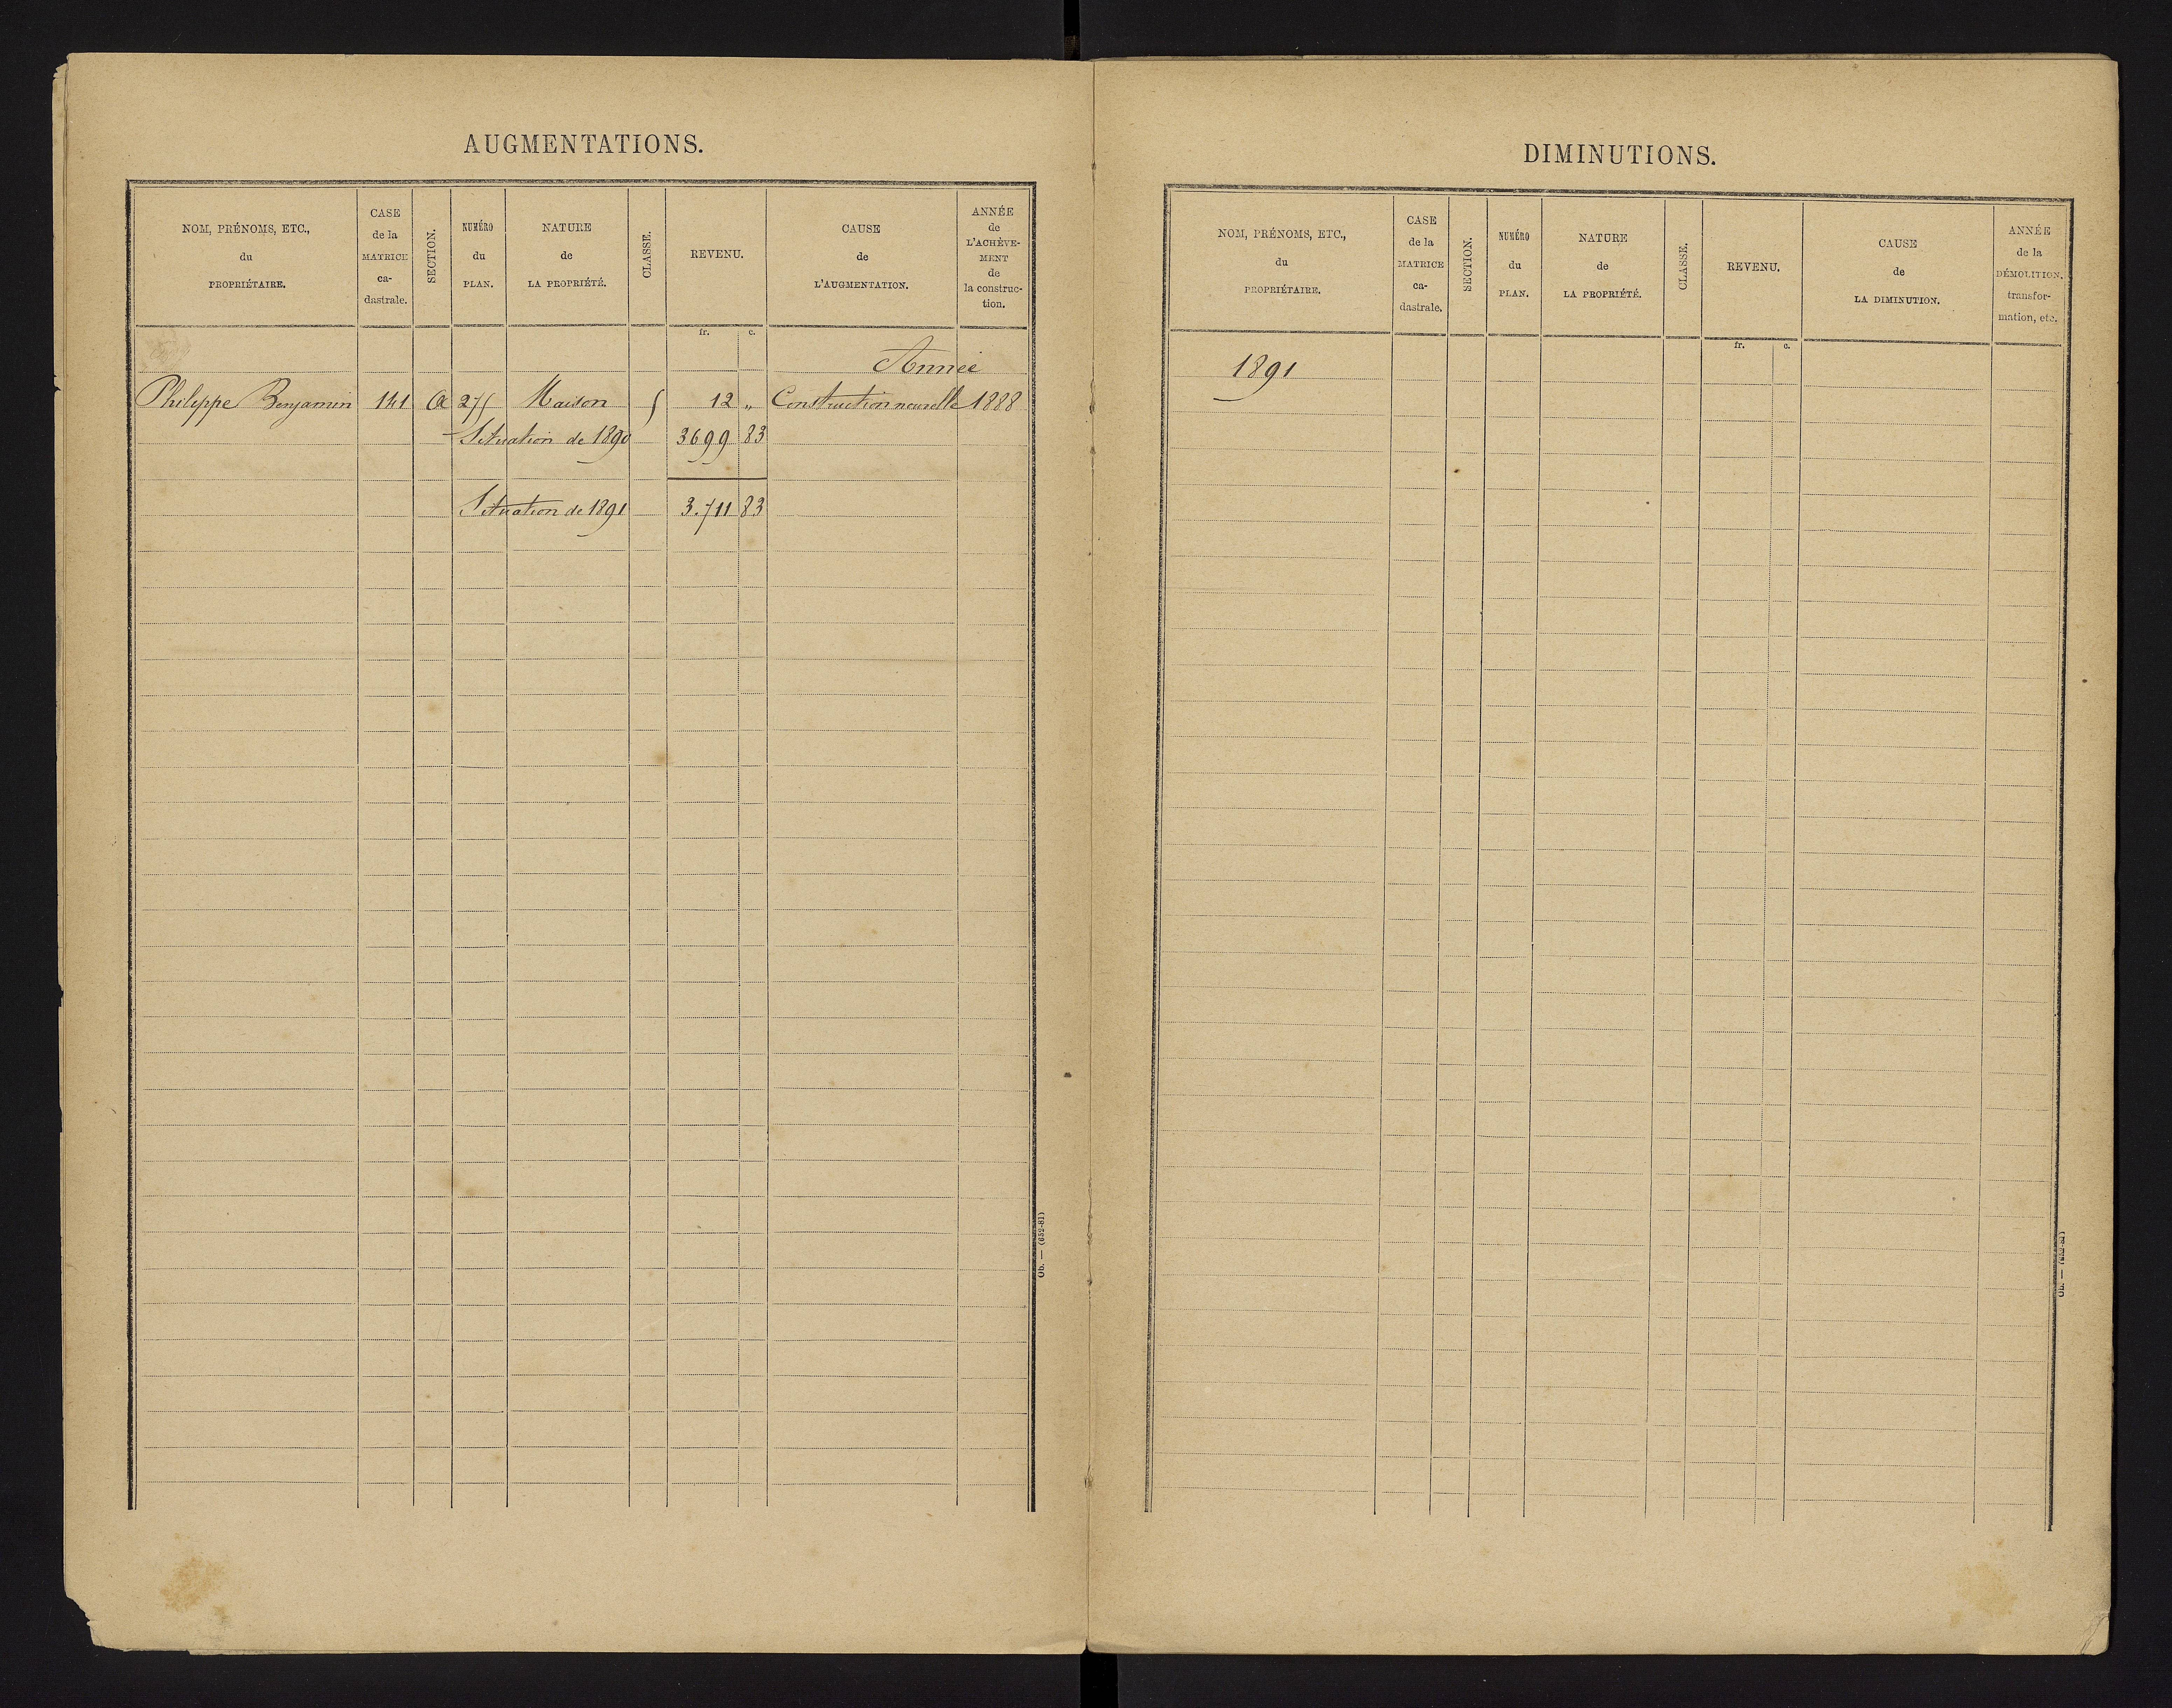 AUGMENTATIONS.
NOM, PRÉNOMS, ETC.,
du
PROPRIÉTAIRE.
CASE
de la
MATRICE
ca-
dastrale.
SECTION.
NUMÉRO
du
PLAN.
NATURE
de
LA PROPRIÉTÉ.
CLASSE.
REVENU.
CAUSE
de
L'AUGMENTATION.
ANNÉE
de
L'ACHÈVE-
MENT
de
la construc-
tion.
fr. c.
Année
Philippe Benjamin 141 A Maison 12 „ Construction nouvelle 1888
Situation de 1890 3699 83
Situation de 1891 3.711 83
Ob. — (652-81)
DIMINUTIONS.
NOM, PRÉNOMS, ETC.,
du
PROPRIÉTAIRE.
CASE
de la
MATRICE
ca-
dastrale.
SECTION.
NUMÉRO
du
PLAN.
NATURE
de
LA PROPRIÉTÉ.
CLASSE.
REVENU.
CAUSE
de
LA DIMINUTION.
ANNÉE
de la
DÉMOLITION,
transfor-
mation, etc.
fr. c.
1891
Ob. — (652-81)